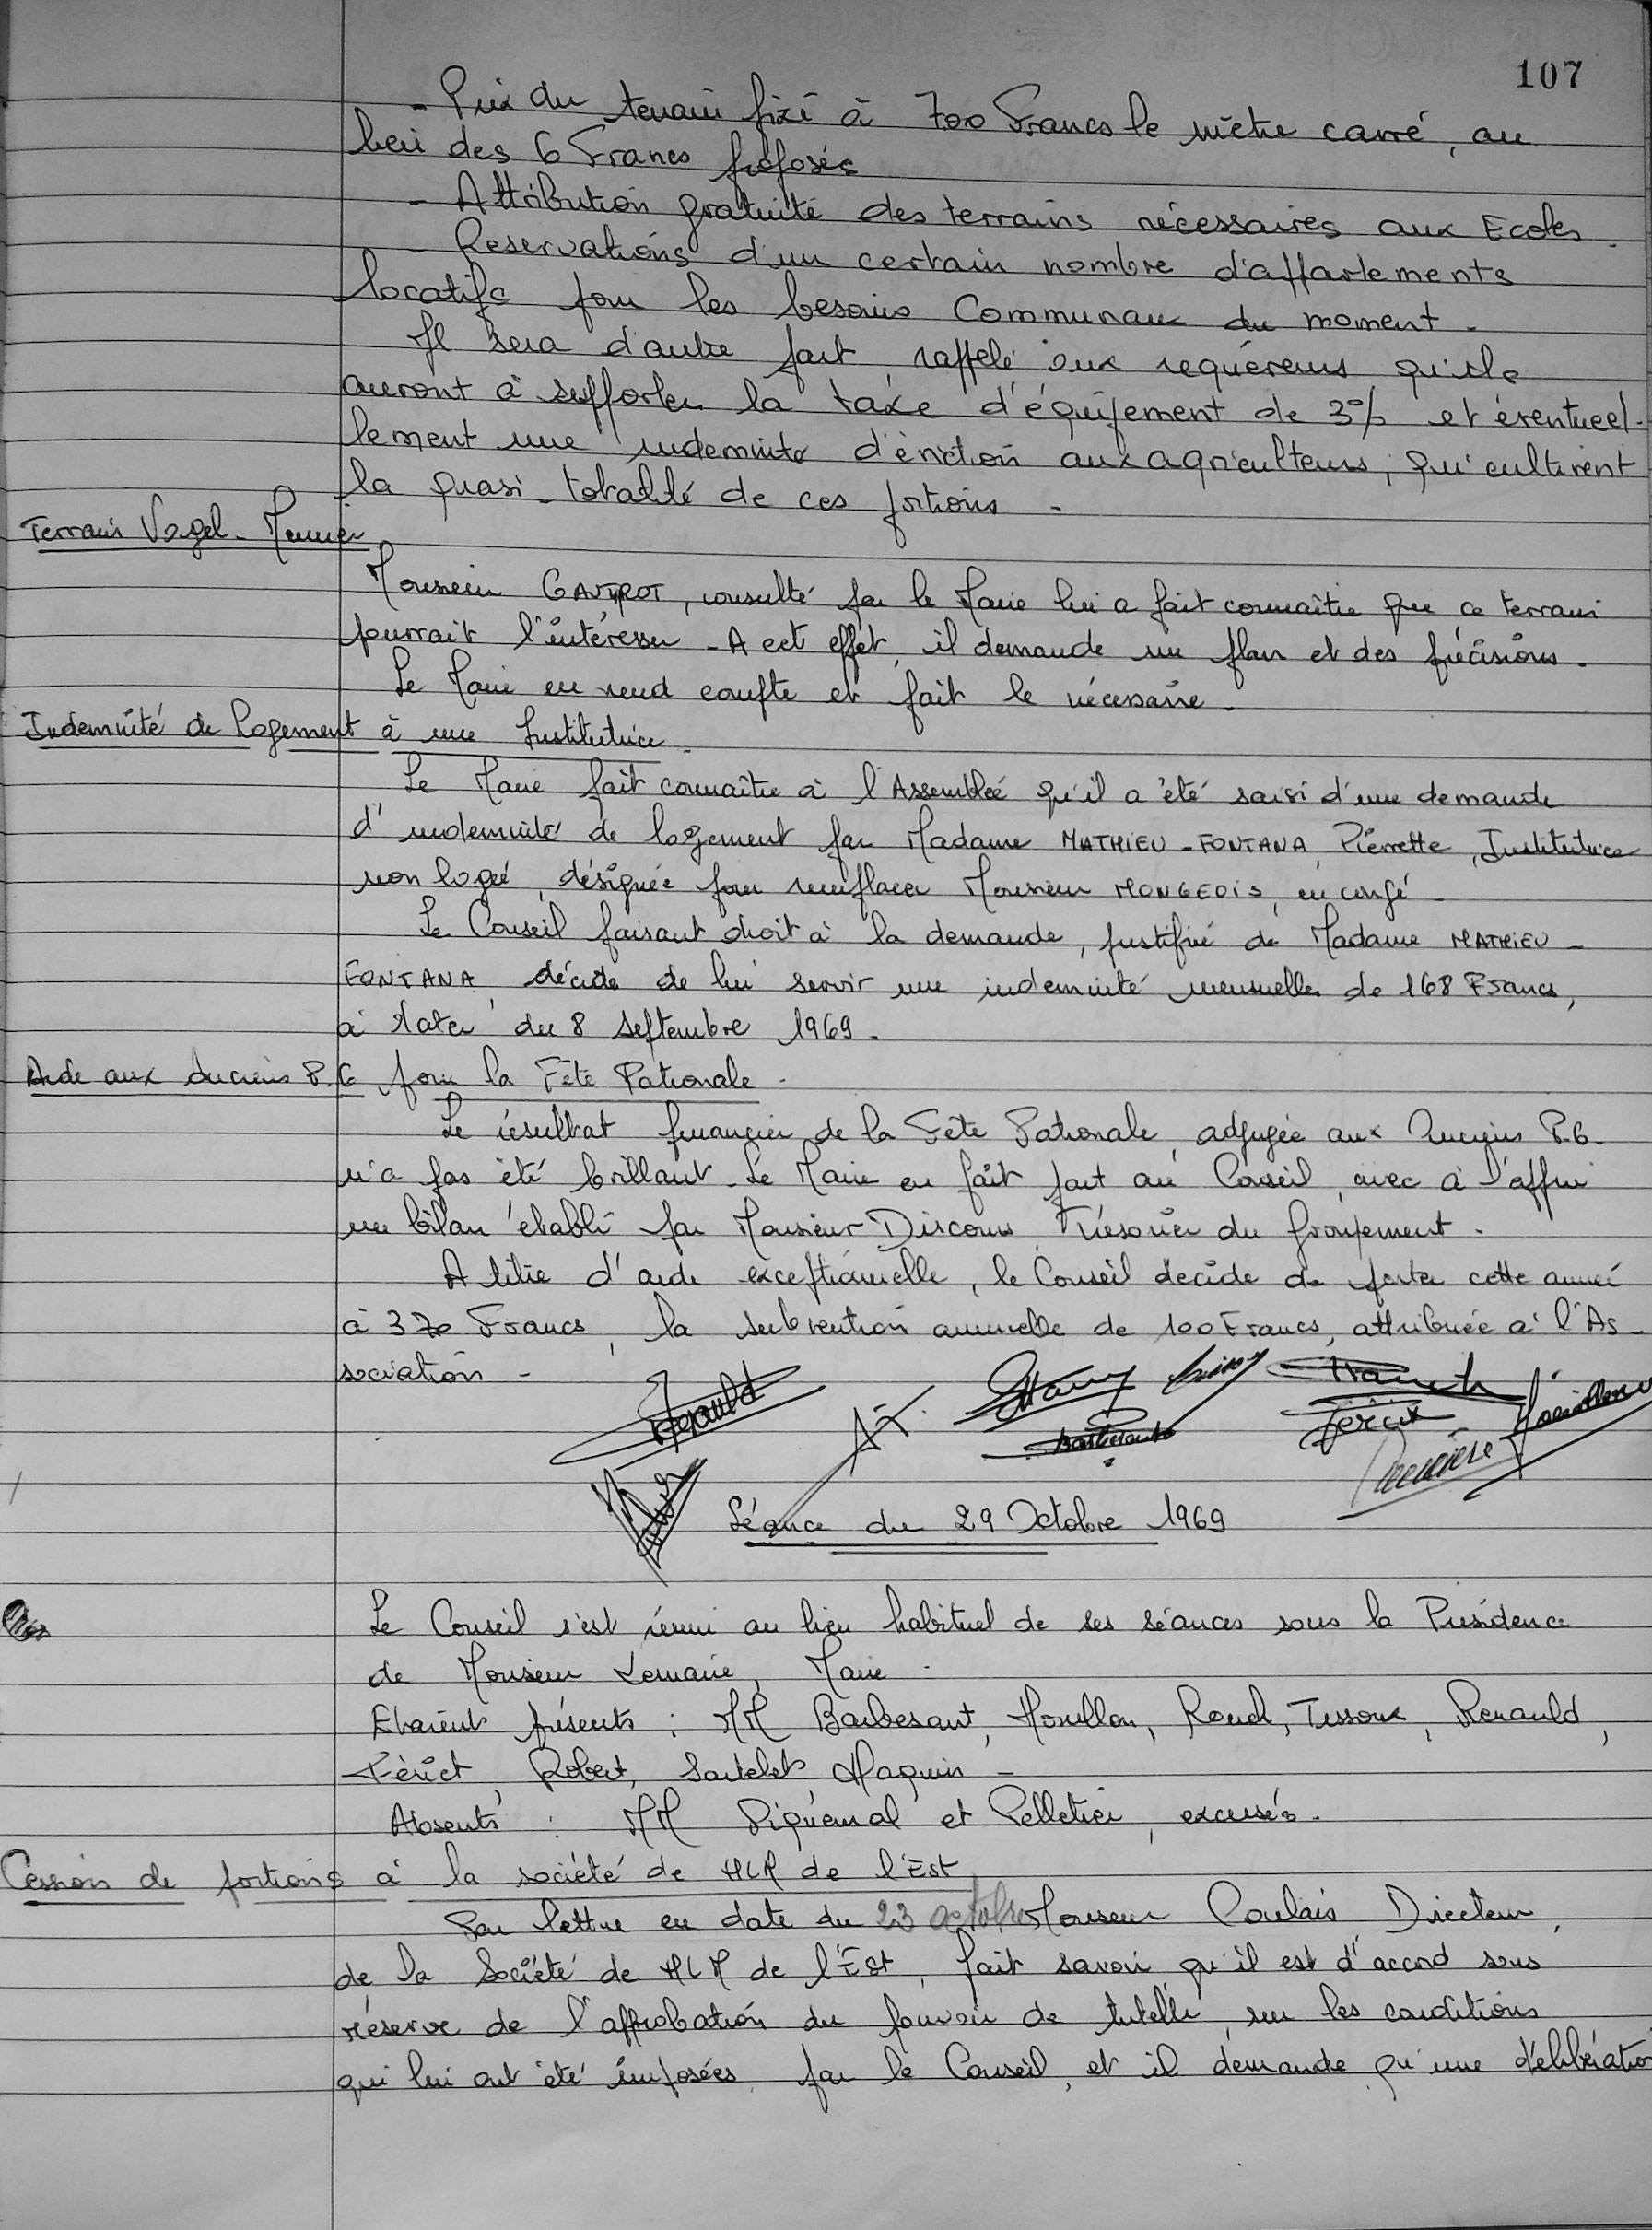 107
- Prix du terrain fixé à 700 Francs le mètre carré, au
lieu des 6 Francs proposés
- Attribution gratuite des terrains nécessaires aux Ecoles.
- Reservations d'un certain nombre d'appartements
locatifs pour les besoins Communaux du moment.
Il sera d'autre part rappelé aux requéreurs qu'ils
auront à supporter la taxe d'équipement de 3% et éventuel-
lement une indemnité d'éviction aux agriculteurs, qui cultivent
la quasi-totalité de ces portions -
Terrain Vogel - Meunier
Monsieur GAUTROT, consulté par le Maire lui a fait connaître que ce terrain
pourrait l'intéresser - A cet effet, il demande un plan et des précisions.
Le Maire en rend compte et fait le nécessaire.
Indemnité de Logement à une Institutrice.
Le Maire fait connaître à l'Assemblée qu'il a été saisi d'une demande
d'indemnité de logement par Madame MATHIEU-FONTANA, Pierrette, Institutrice
non logée, désignée pour remplacer Monsieur MONGEOIS, en congé
Le Conseil faisant droit à la demande, justifiée de Madame MATHIEU-
FONTANA, décide de lui servir une indemnité mensuelle de 168 Francs,
à dater du 8 septembre 1969.
Aide aux Anciens P.G pour la Fête Patronale.
Le résultat financier de la Fête Patronale, adjugée aux Anciens P.G.
n'a pas été brillant. Le Maire en fait part au Conseil, avec à l'appui
un bilan établi par Monsieur Discours, Trésorier du groupement.
A titre d'aide exceptionnelle, le Conseil décide de porter cette année
à 370 Francs, la subvention annuelle de 100 Francs, attribuée à l'As-
sociation -
Séance du 29 Octobre 1969
Le Conseil s'est réuni au lieu habituel de ses séances sous la Présidence
de Monsieur Lemaire, Maire.
Etaient présents : MM Barbesant, Houillon, Rouch, Tissoux, Renauld,
Fériet, Robert, Sartelet Maquin -
Absents : MM Piquemal et Pelletier, excusés.
Cession de portions à la société de HLM de l'Est
Par lettre en date du 23 octobre Monsieur Poulais Directeur,
de la Société de HLM de l'Est, fait savoir qu'il est d'accord sous
réserve de l'approbation du pouvoir de tutelle, sur les conditions
qui lui ont été imposées par le Conseil, et il demande qu'une délibération